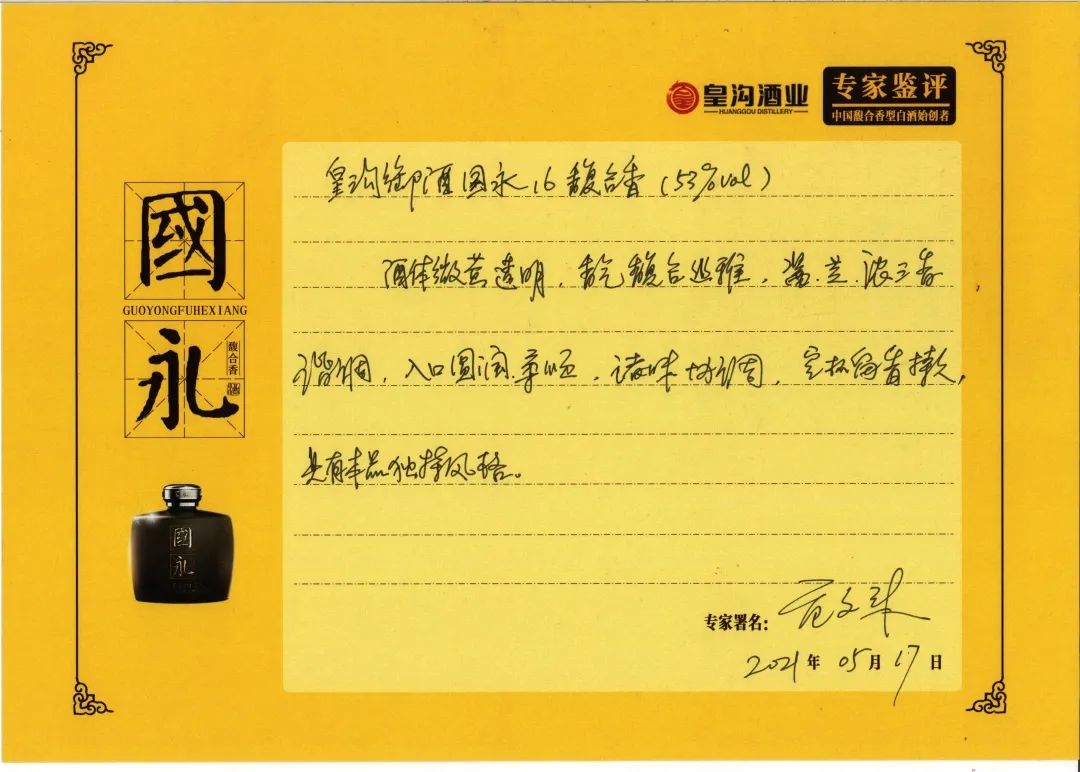 皇沟酒业
HUANGGOU DISTILLERY
专家鉴评
中国馥合香型白酒始创者
國
GUOYONGFUHEXIANG
永
馥合香
國
永
皇沟御酒国永16馥合香(53%vol)
酒体微黄透明，香气馥合幽雅，酱.芝.浓三香
谐调，入口圆润.柔顺，诸味协调，空杯留香持久，
具有本品独特风格。
专家署名：范文来
2021年05月17日